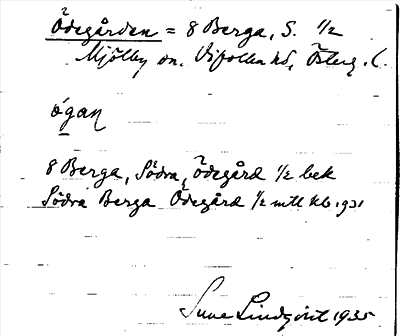 Ödegården = 8 Berga, S. 1/2
Mjölby sn. Vifolka hd, Österg. l.
ö̀gan
8 Berga, Södra, Ödegård 1/2 bek
Södra Berga Ödegård 1/2 mtl Kb. 1931
Sune Lindqvist 1935